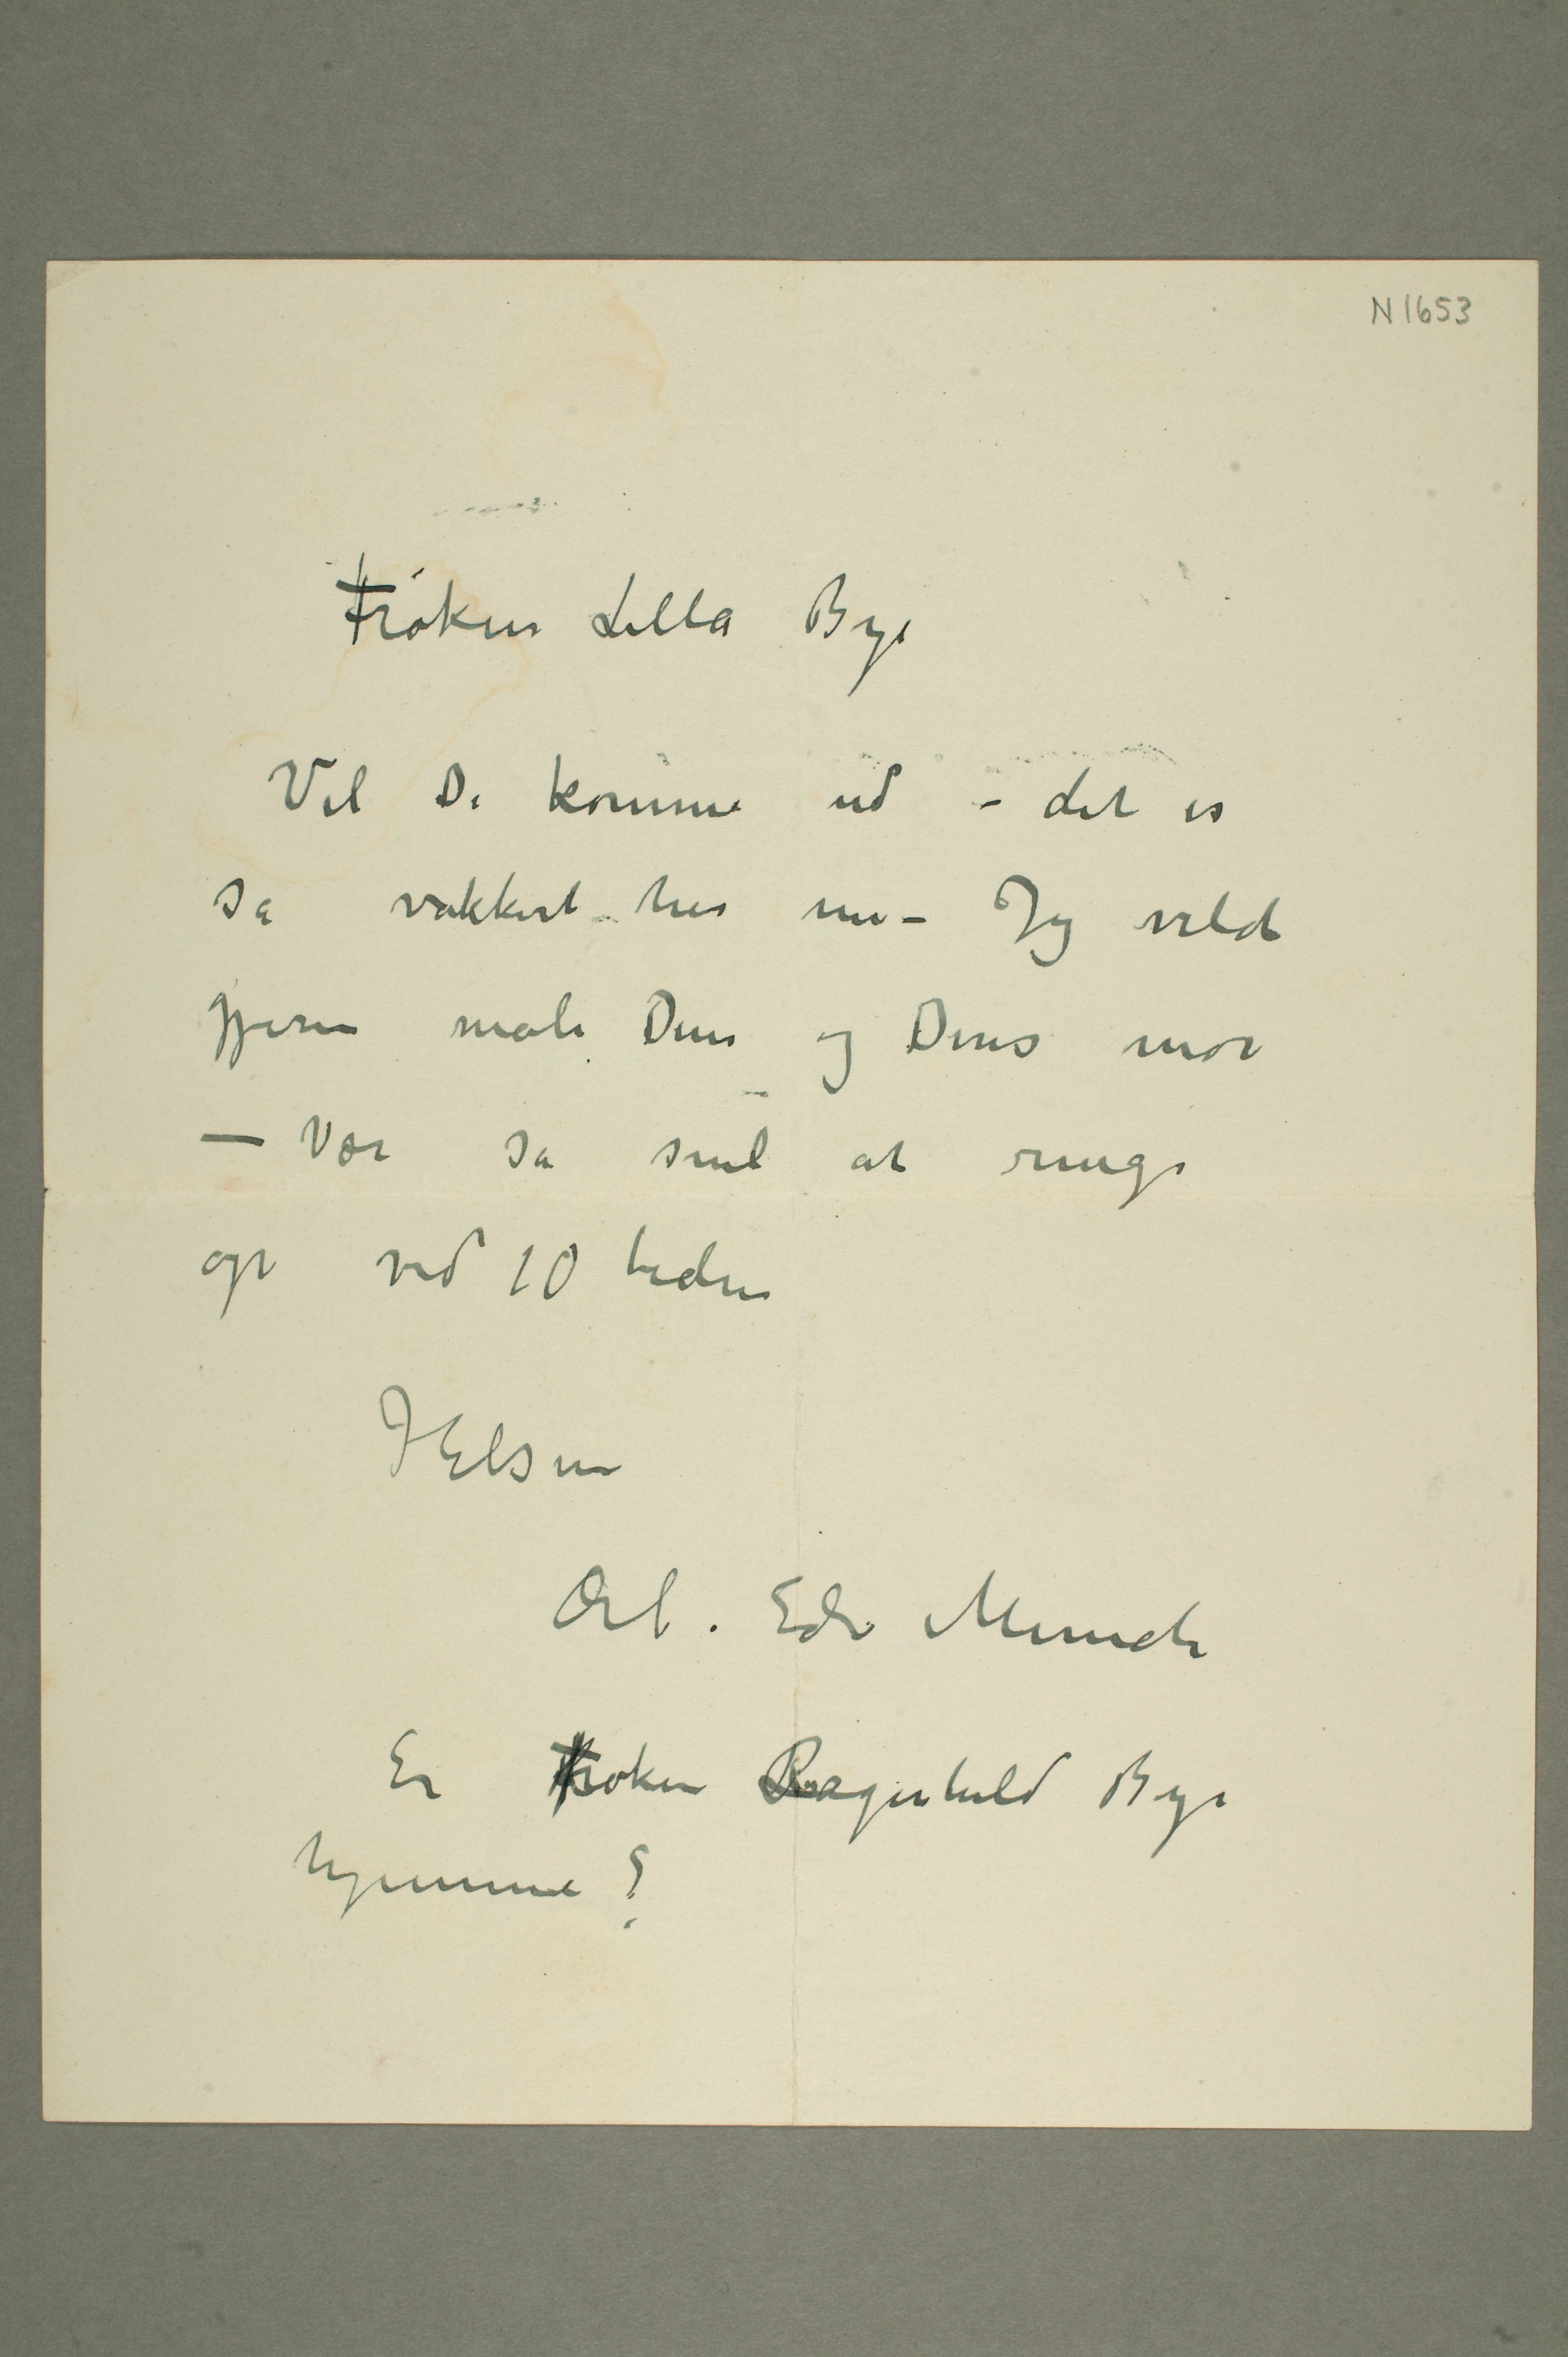 N 1653
Frøken Lilla Bye
Vil De komme ud – det er
så vakkert her nu – Jeg vilde
gjerne male Dem og Deres mor
— Vær så snil at ringe
op ved 10 tiden
Hilsen
Ærb. Edv Munch
Er Frøken Ragnhild Bye
hjemme?